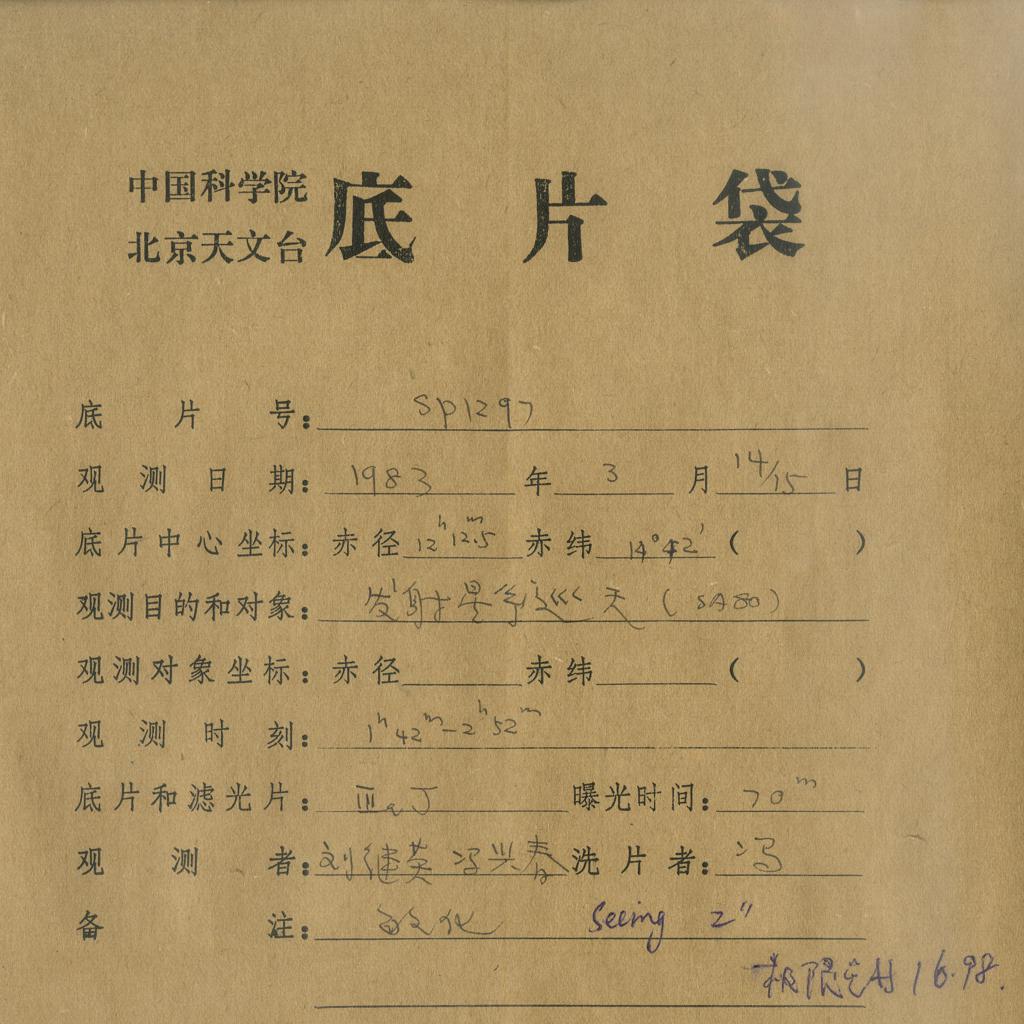 中国科学院
北京天文台
底片袋
底片号：SP1297
观测日期：1983年3月14/15日
底片中心坐标：赤径12h12m.5赤纬14°42'（ ）
观测目的和对象：发射星系巡天（SA80）
观测对象坐标：赤径 赤纬 （ ）
观测时刻：1h42m—2h52m
底片和滤光片：ⅢaJ 曝光时间：70m
观测者：刘继英 冯兴春 洗片者：冯
备注：敏化 Seeing 2"
极限星等 16.98.